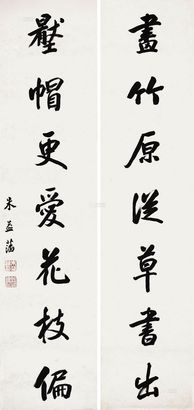 畫竹原從草書出
壓帽更愛花枝偏
朱益藩